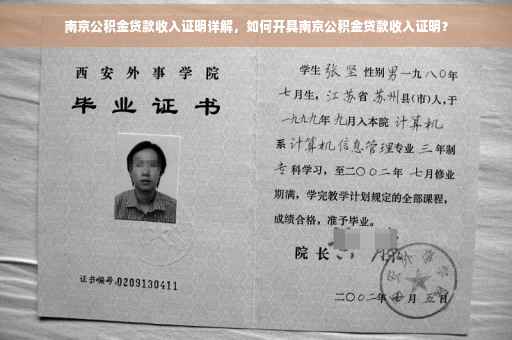 南京公积金贷款收入证明详解，如何开具南京公积金贷款收入证明？
西安外事学院
毕业证书
证书编号:0209130411
学生 张坚 性别 男 一九八〇年
七月生，江苏省 苏州县(市)人,于
一九九九年 九月入本院 计算机
系 计算机信息管理专业 三 年制
专 科学习，至二〇〇二年 七月修业
期满，学完教学计划规定的全部课程，
成绩合格，准予毕业。
院长
二〇〇二年 月 五日